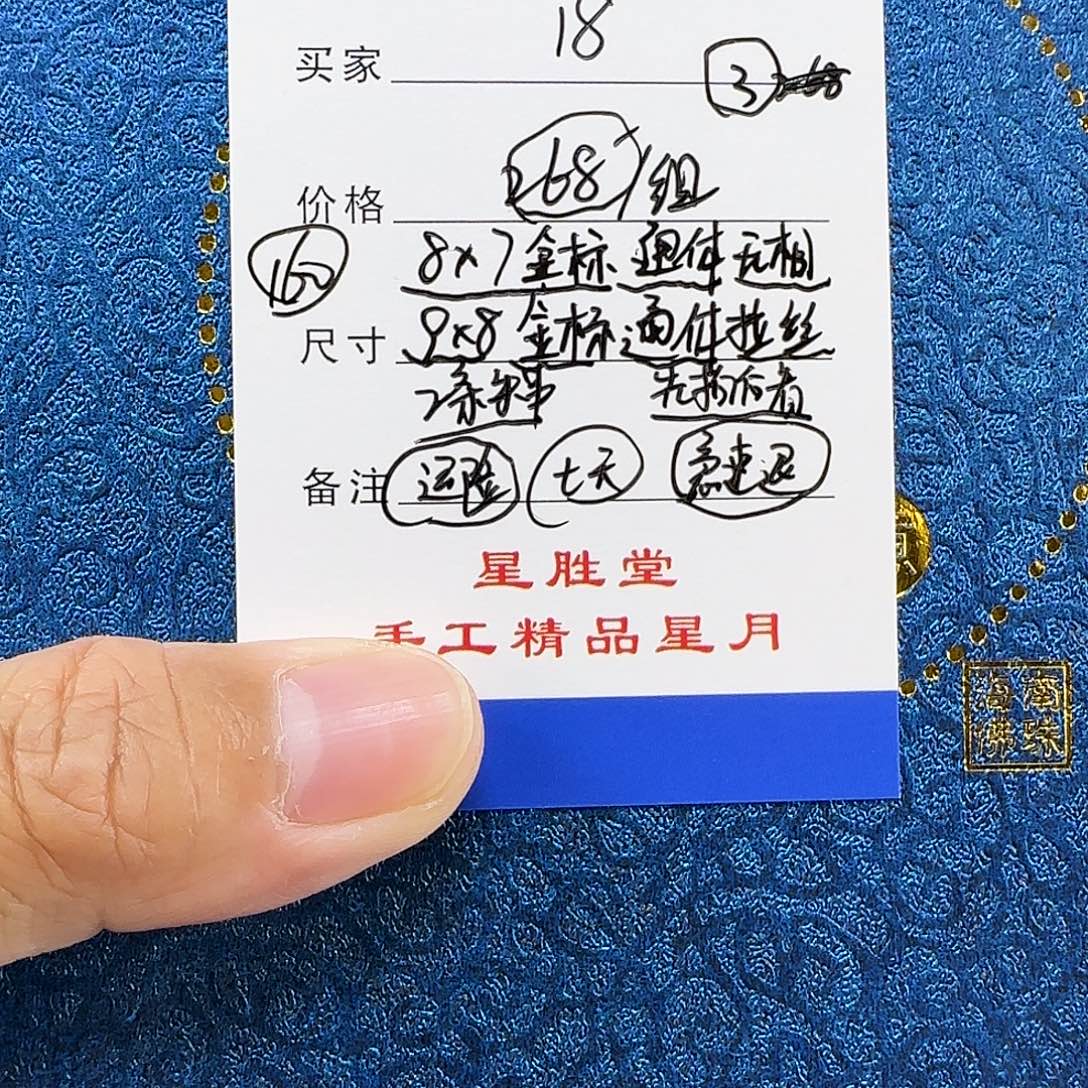 18
买家 ③
价格 268/组
160 8×7金标 通体无相
尺寸 9×8金标通体拉丝
2条单 先拆后看
备注 运险 七天 急速退
星胜堂
手工精品星月
海南
佛珠